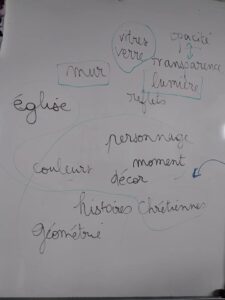 vitres
verre
opacité
transparence
mur
lumière
reflets
église
personnage
couleurs
moment
décor
histoires Chrétiennes
géométrie